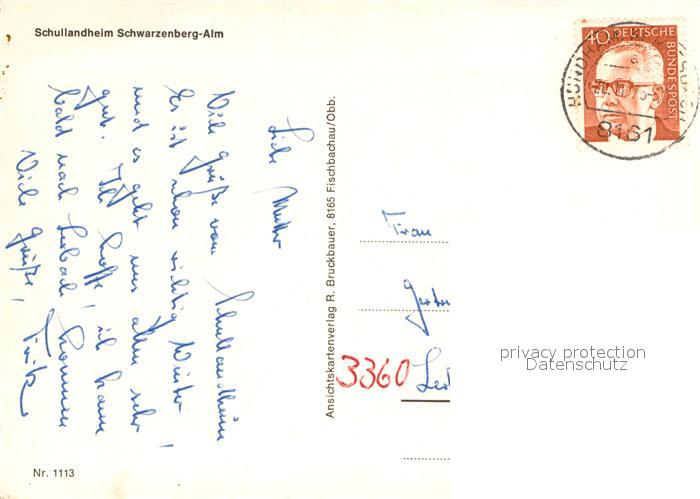 Schullandheim Schwarzenberg-Alm
Liebe Mutter
Viele Grüße vom Schullandheim
Es ist schon richtig Winter,
und es geht uns allen sehr
gut. Ich hoffe, ich kann
bald nach kommen
Viele Grüße!
Fritz
Nr. 1113
Ansichtskartenverlag R. Bruckbauer, 8165 Fischbachau/Obb.
40 DEUTSCHE BUNDESPOST
8161
Frau
3360
privacy protection
Datenschutz